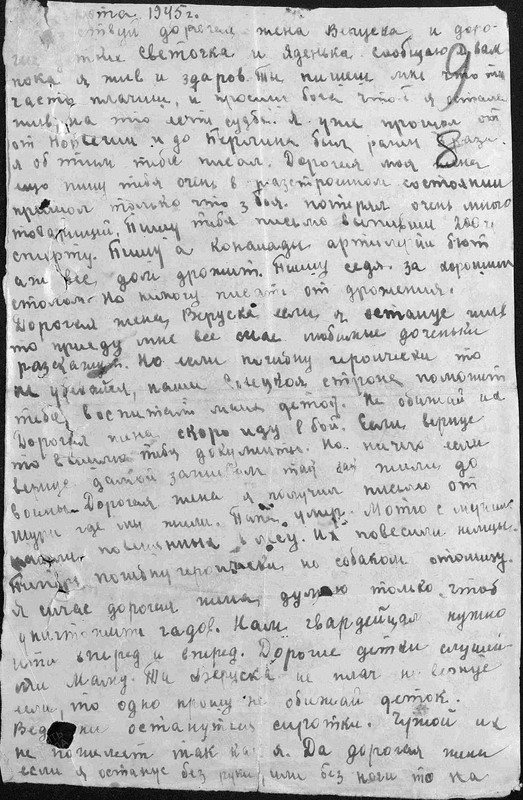 1945г.
дорогая жена Веруска и доро-
детки Светочка и Яденька сообщаю вам
пока я жив и здаров. Ти пишеш мне что ти
часто плачиш, и просиш бога что-б я остался
жив, на то есть судьба. Я уже прошол от
от Норвегии и до Берлина был ранен 8 раза.
я об этим тибе писал. Дорогая моя жена
ещо пишу тибя очень в разстроином состоянии
пришол только что з боя. потерял очень много
товарищей. Пишу тибя письмо выпивши 200 г.
спирту. Пишу а конанади артилерии бют
аж все дом дрожит. Пишу седя за хорошим
столом. Но нимогу писать от дрожения.
Дорогая жена Веруска если я останус жив
то приеду мне все мае любимые доченьки
разскажут. Но если погибну героически то
не убевайся, наша Совецкая сторона поможит
тибе воспитать маих деток. Не обижай их
Дорогая жена скоро иду в бой. Если вернус
то вышлю тибя документы. Но ничего если
вернус дамой заживем так как жили до
воины. Дорогая жена я получил писмо от
Шури где ми жили. Папа умир. Мотю с внучик
нашли повешиных в лесу. Их повесили немцы.
погибну героически, но собакам отомщу.
Я сичас дорогая жена думаю только чтоб
уничтожить гадов. Нам гвардейцам нужно
ити вперед и вперед. Дорогие детки слушай
ти Маму. Ти Веруска не плач не вернус
если, то одно прошу не обижай деток.
Ведь они останутся сиротки. Чужой их
не пожалеет так как я. Да дорогая жена
если я останус без руки или без ноги то на